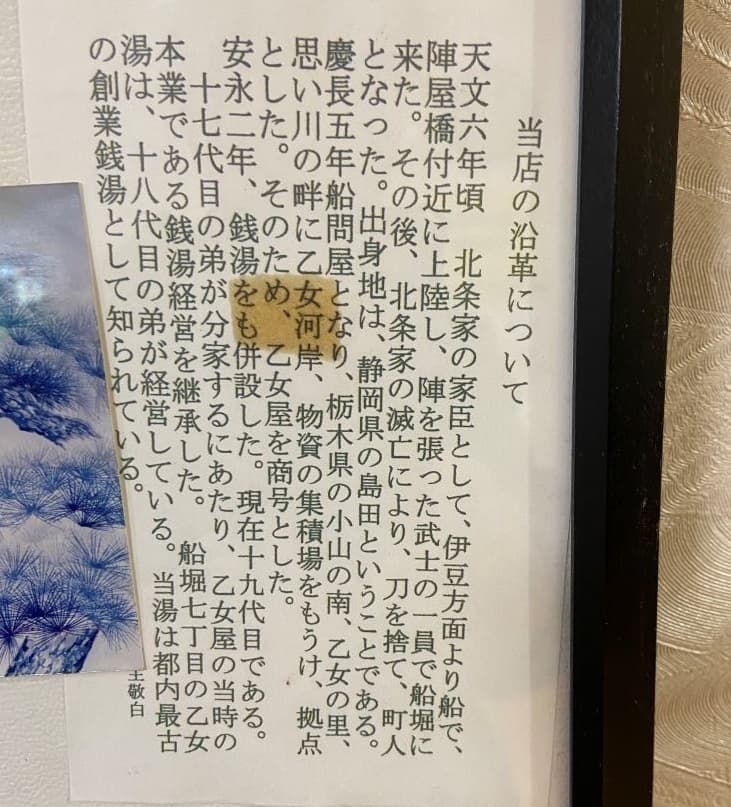 当店の沿革について
天文六年頃　北条家の家臣として、伊豆方面より船で、
陣屋橋付近に上陸し、陣を張った武士の一員で船堀に
来た。その後、北条家の滅亡により、刀を捨て、町人
となった。出身地は、静岡県の島田ということである。
慶長五年船問屋となり、栃木県の小山の南、乙女の里、
思い川の畔に乙女河岸、物資の集積場をもうけ、拠点
とした。そのため、乙女屋を商号とした。
安永二年、銭湯をも併設した。現在十九代目である。
十七代目の弟が分家するにあたり、乙女屋の当時の
本業である銭湯経営を継承した。船堀七丁目の乙女
湯は、十八代目の弟が経営している。当湯は都内最古
の創業銭湯として知られている。
主敬白